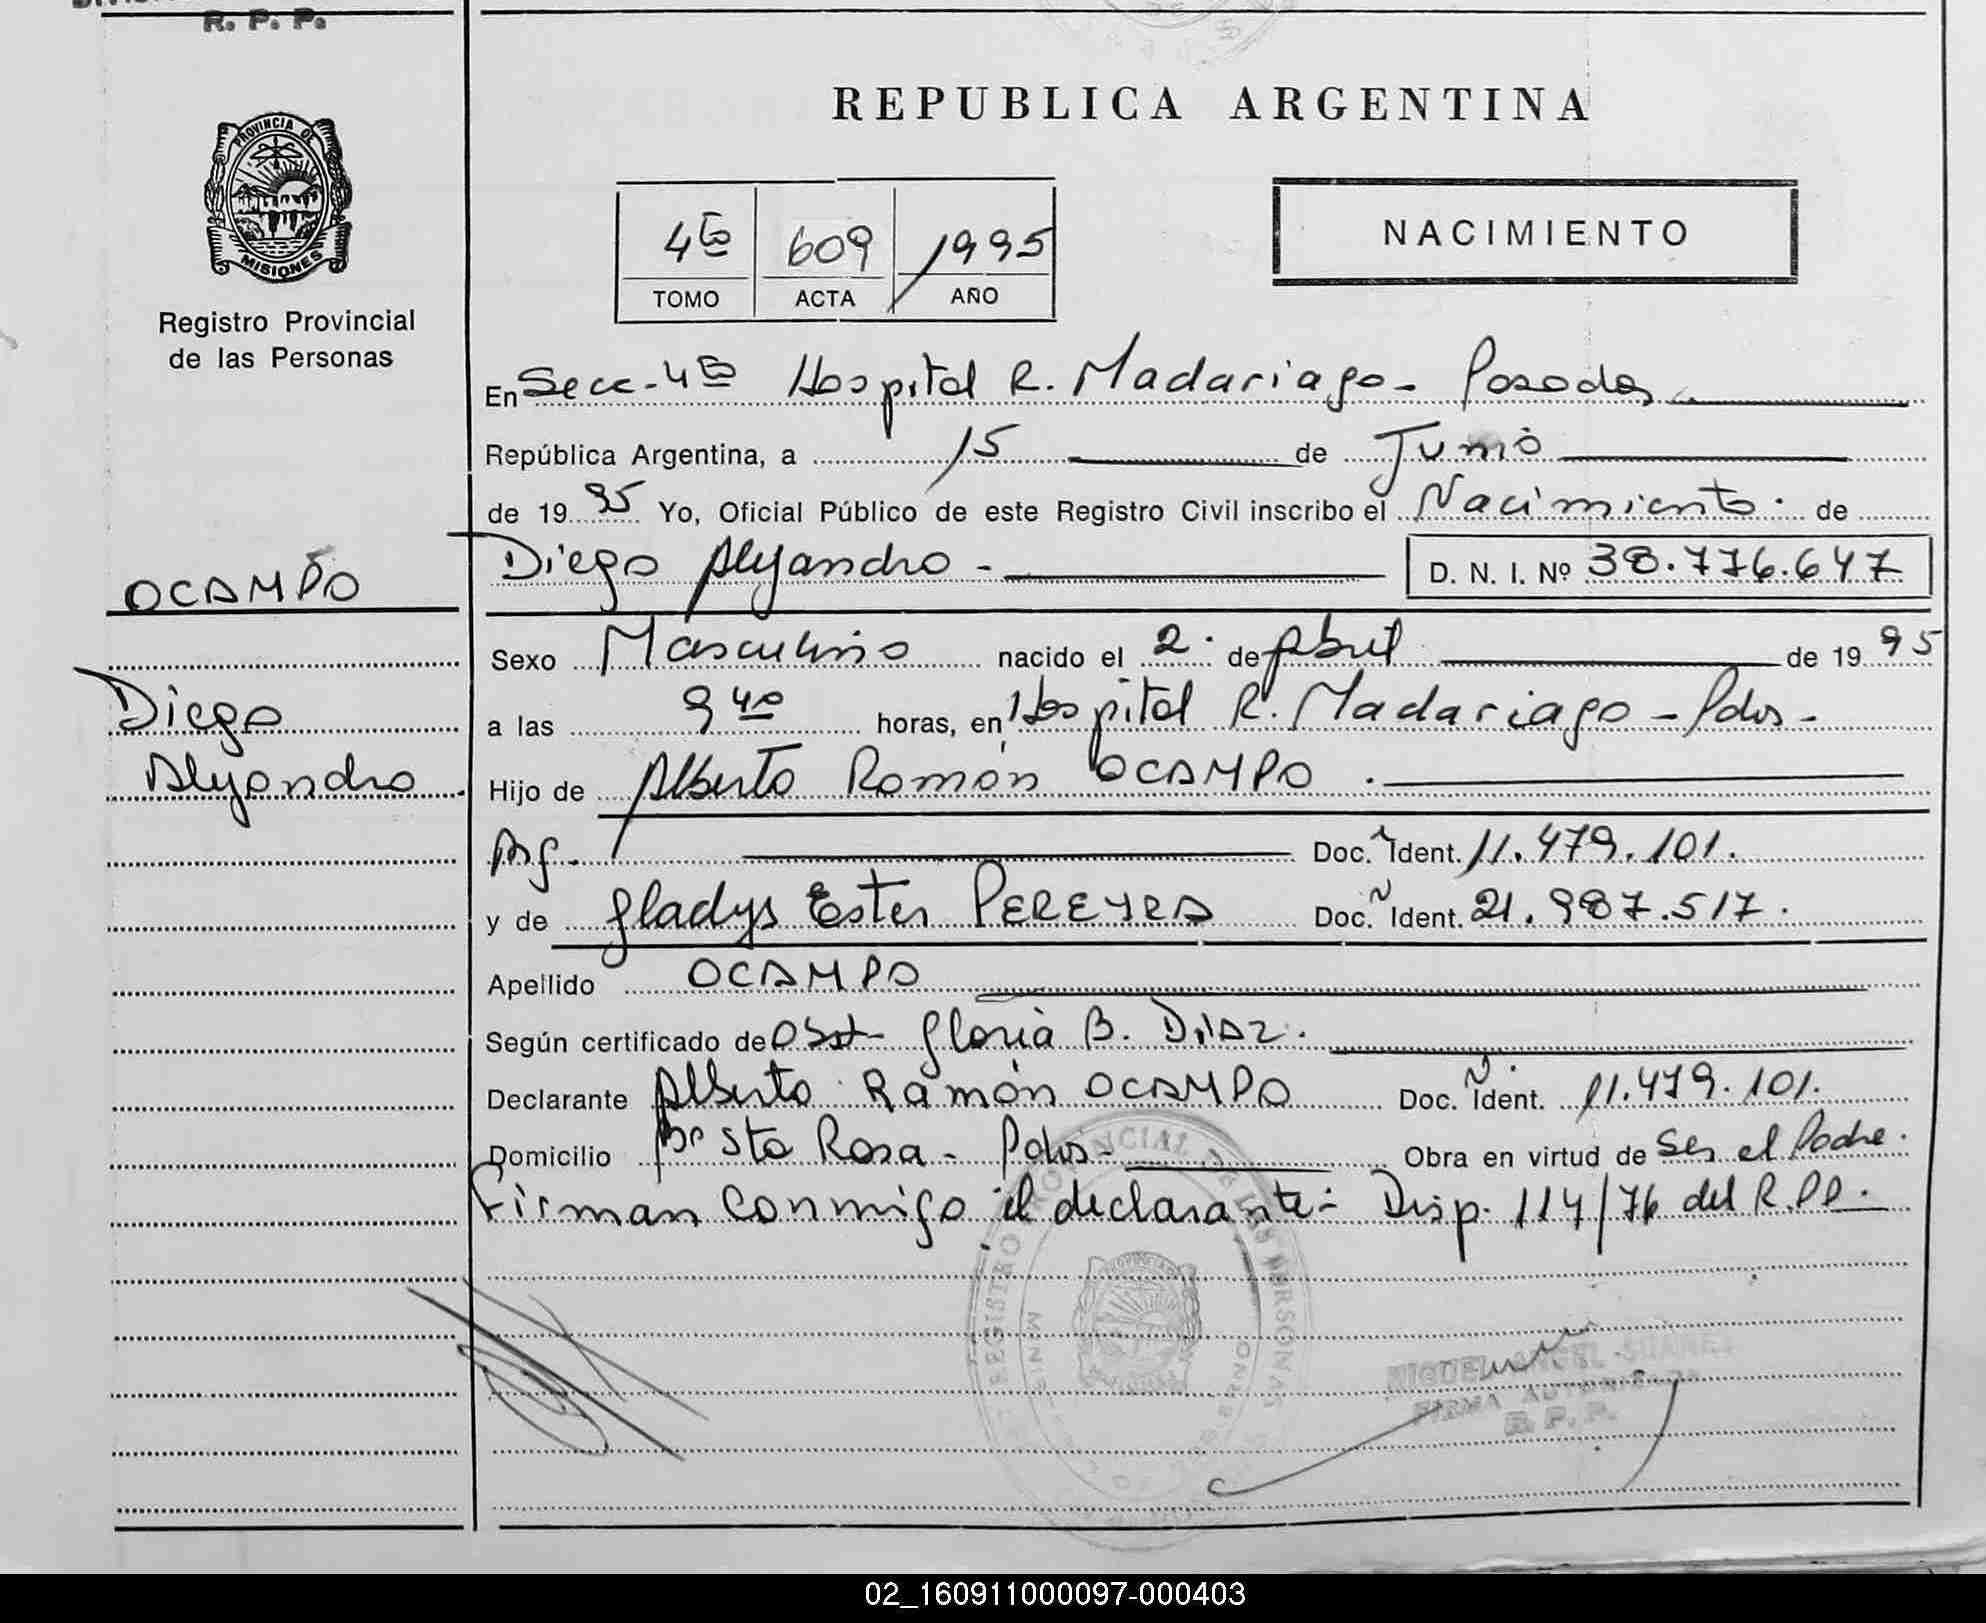 R. P. P.
REPUBLICA ARGENTINA
PROVINCIA DE
MISIONES
Registro Provincial
de las Personas
4to 609 1995
TOMO ACTA AÑO
NACIMIENTO
En Secc-4ta Hospital R. Madariaga - Posadas
República Argentina, a 15 de Junio
de 1995 Yo, Oficial Público de este Registro Civil inscribo el Nacimiento. de
OCAMPO
Diego Alejandro - D. N. I. Nº 38.776.647
Sexo Masculino nacido el 2. de Abril de 1995
Diego
a las 9 40 horas, en Hospital R. Madariaga - Pdas -
Alejandro
Hijo de Alberto Ramón OCAMPO.
Arg. Doc. Ident. 11.479.101.
y de Gladys Ester PEREYRA Doc. Ident. 21.987.517.
Apellido OCAMPO
Según certificado de Obst- Gloria B. Diaz.
Declarante Alberto Ramón OCAMPO Doc. Ident. 11.479.101.
Domicilio Bº Sta Rosa - Pdas - Obra en virtud de Ser el Padre.
Firman conmigo el declarante: Disp. 114/76 del R.PP.
REGISTRO PROVINCIAL DE LAS PERSONAS
MIGUEL ANGEL SUAREZ
FIRMA AUTORIZADA
R. P. P.
02_160911000097-000403